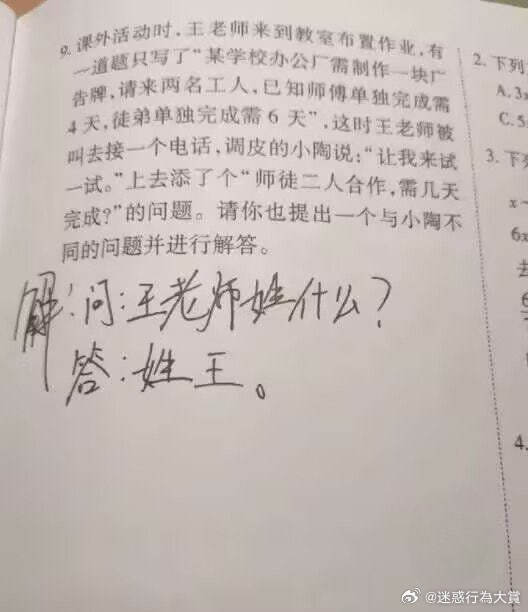 9. 课外活动时,王老师来到教室布置作业,有
一道题只写了“某学校办公厂需制作一块广
告牌,请来两名工人,已知师傅单独完成需
4天,徒弟单独完成需6天”,这时王老师被
叫去接一个电话,调皮的小陶说:“让我来试
一试。”上去添了个“师徒二人合作,需几天
完成?”的问题。请你也提出一个与小陶不
同的问题并进行解答。
解:问:王老师姓什么?
答:姓王。
2. 下列
A. 3x
C. 5
3. 下列
x-
6x
去
4.
@迷惑行為大賞